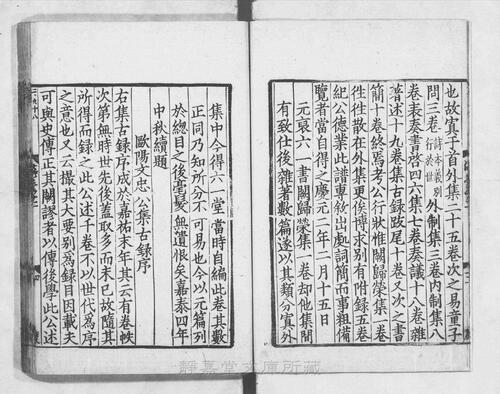 也故寘于首外集二十五卷次之易童子
問三卷詩本義別行於世外制集三卷内制集八
卷表奏書啓四六集七卷奏議十八卷雜
著述十九卷集古録跋尾十卷又次之書
簡十卷終焉考公行狀惟闕歸榮集一卷
徃徃散在外集更俟博求别有附録五卷
紀公德業此譜專叙出處詞簡而事粗備
覽者當自得之慶元二年二月十五日
元裒六一書闕歸榮集一卷却他集間
有致仕後雜著數篇遂以其類分寘外
集中續得六一堂當時自編此卷其數
正同乃知所分不可易也今以元篇列
於總目之後毫髪無遺恨矣嘉泰四年
中秋續題
歐陽文忠公集古録序
右集古録序成於嘉祐末年其云有卷帙
次第無時世先後蓋取多而未已故隨其
所得而録之此公述千卷不以世代為序
之意也又云撮其大要别為録目因載夫
可與史傳正其闕謬者以傳後學此公述
静嘉堂文庫所蔵